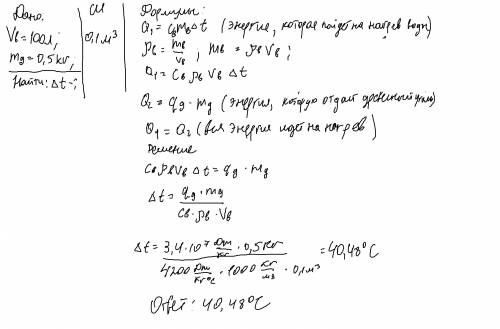 Дано:
Vв = 100л;
mд = 0,5 кг,
Найти: Δt-;
СИ
0,1 м³
Формулы:
Q₁ = cв mв Δt (энергия, которая пойдет на нагрев воды)
ρв = mв/Vв ; mв = ρв Vв ;
Q₁ = Cв ρв Vв Δt
Q₂ = qд · mд (энергия, которую отдаст древесный уголь)
Q₁ = Q₂ (вся энергия идет на нагрев)
Решение
Cв ρв Vв Δt = qд · mд
Δt = qд · mд / Cв · ρв · Vв
Δt = 3,4·10⁷ Дж/кг · 0,5 кг / 4200 Дж/кг°C · 1000 кг/м³ · 0,1 м³ = 40,48°C
Ответ: 40,48°C